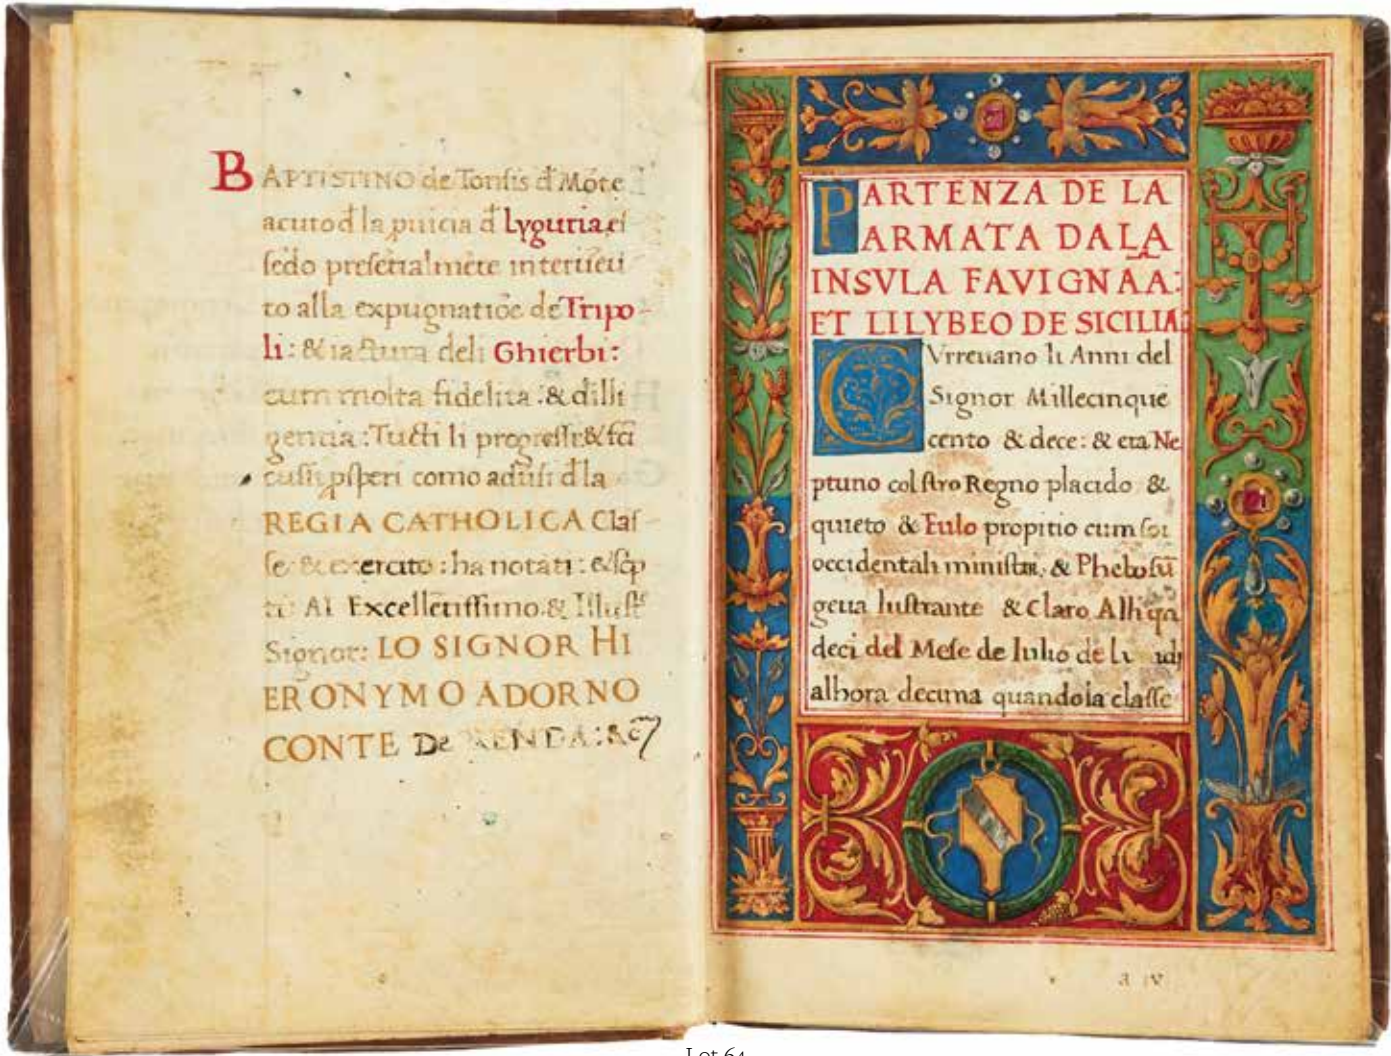 BAPTISTINO de Tonsis d̄ Mōte
acuto d̄ la p̱uicia d̄ lyguria, eſ
ſēdo preſētialmēte interueū
to alla expugnatiōe de Tripo-
li: & iactura deli Ghierbi:
cum molta fidelita: & dilli
gentia: Tucti li progreſſi: & ſcī
cuſſi ꝓſperi como aduſi d̄ la
REGIA CATHOLICA Claſ-
ſe & exercito: ha notati: & ſcp̄
ti: Al Excellētiſſimo & Illuſt̄
Signor: LO SIGNOR HI
ERONYMO ADORNO
CONTE De RENDA: &c̄
PARTENZA DE LA
ARMATA DALA
INSVLA FAVIGNAA:
ET LILYBEO DE SICILIA:
CVrreuano li Anni del
Signor Millecinque
cento & dece: & era Ne
ptuno col ſtro Regno placido &
quieto & Eulo propitio cum ſoi
occidentali miniſtri, & Phebo ſū
geua luſtrante & Claro Alli qn̄
deci del Meſe de Iulio de
alhora decuna quando la claſſe
a iv
Lot 64